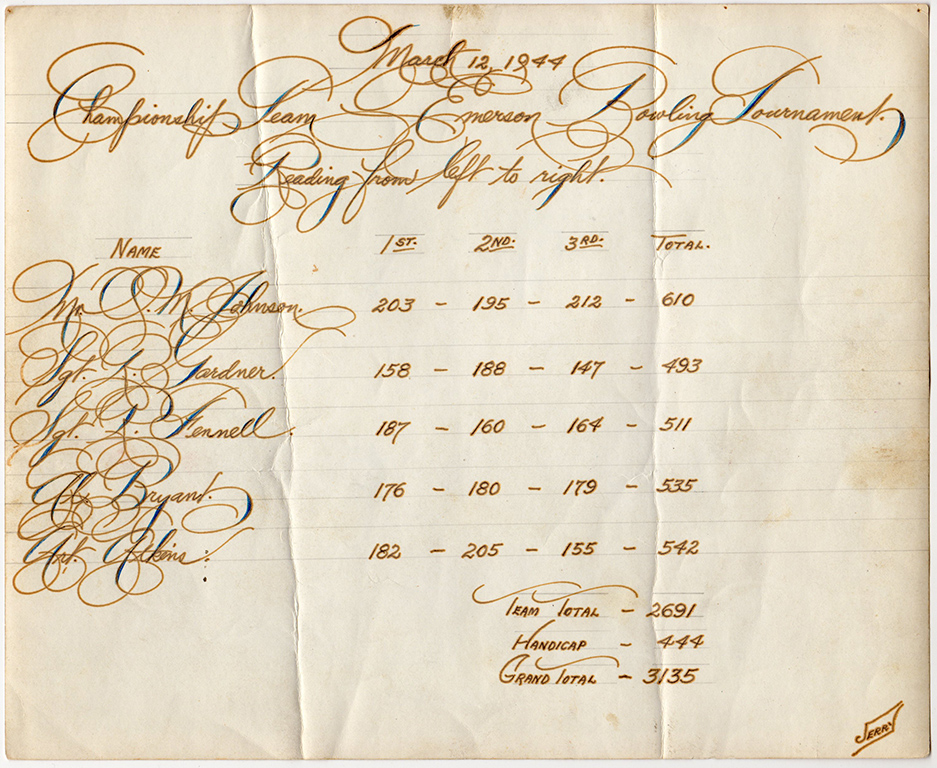 March 12, 1944
Championship Team Emerson Bowling Tournament.
Reading from left to right.
NAME 1ST. 2ND. 3RD. TOTAL.
Mr. O. M. Johnson. 203 - 195 - 212 - 610
Sgt. L. Gardner. 158 - 188 - 147 - 493
Sgt. L. Fennell 187 - 160 - 164 - 511
Al. Bryant. 176 - 180 - 179 - 535
Art. Atkins: 182 - 205 - 155 - 542
TEAM TOTAL - 2691
HANDICAP - 444
GRAND TOTAL - 3135
JERRY